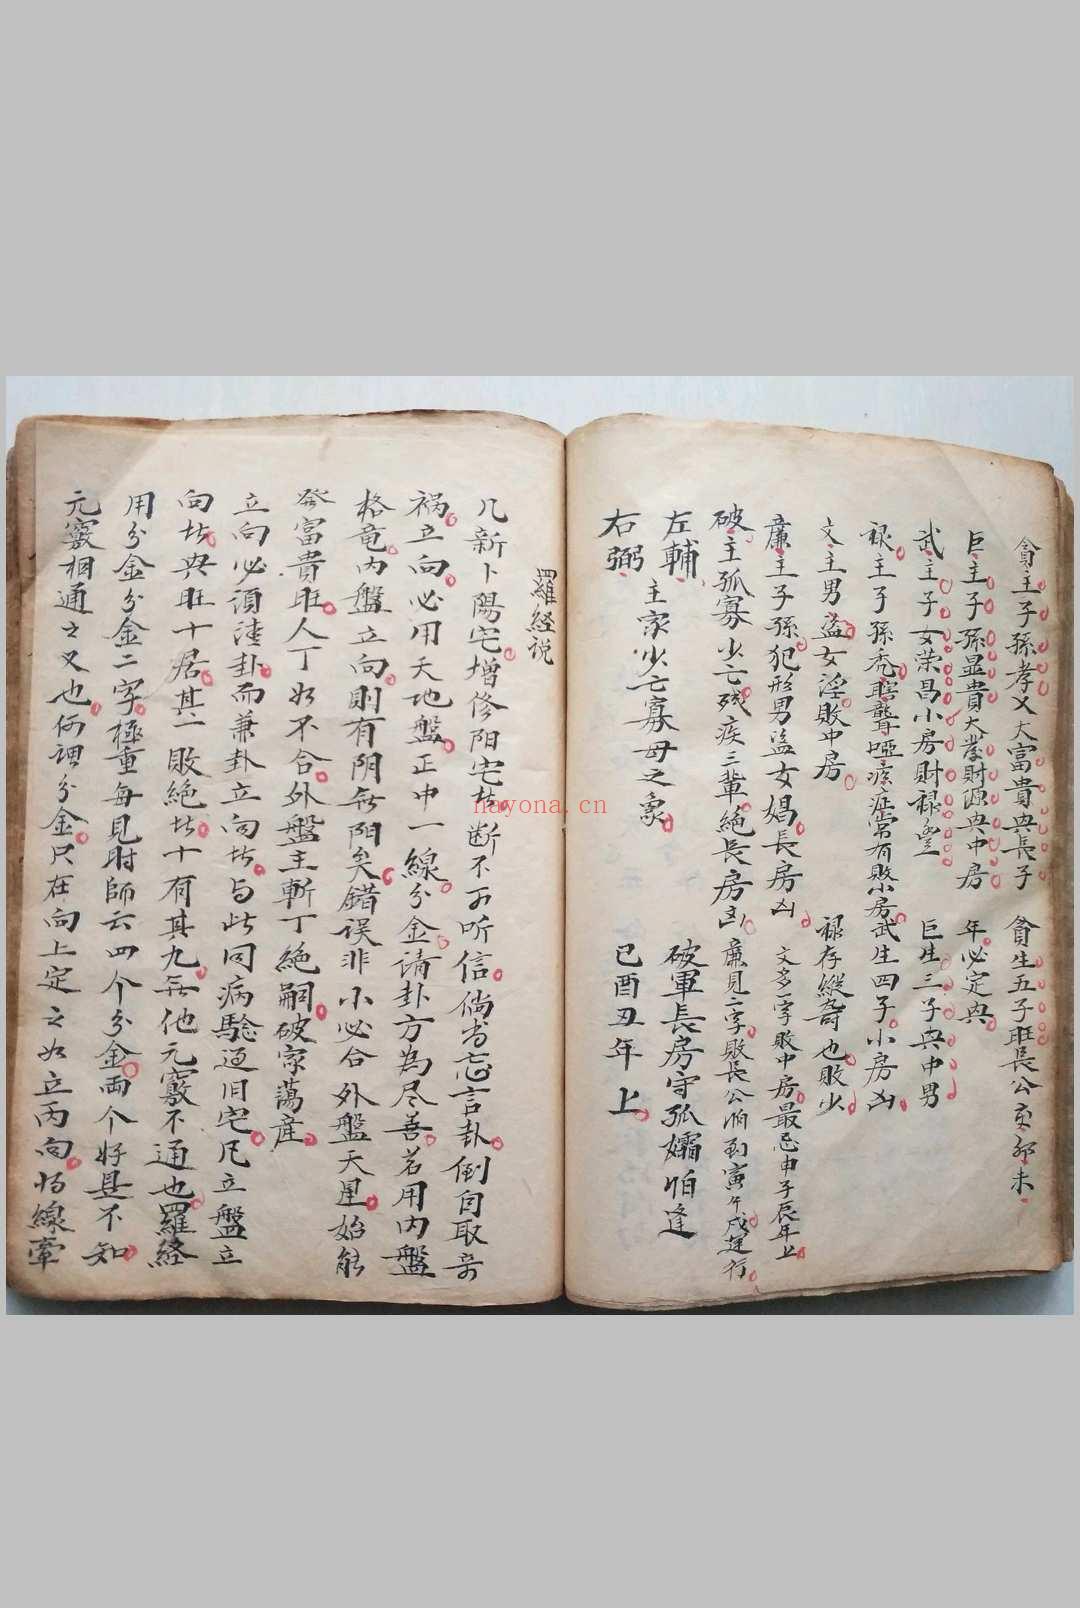 貪主子孫孝义大富貴典長子
貪生五子旺長公亥卯未
巨主子孫显貴大發財源典中房
年必定典
武主子女荣昌小房財禄豊
巨生三子典中男
禄主子孫禿瞎聾啞瘝症常有敗小房
武生四子小房凶
文主男盗女淫敗中房
禄存縱奇也敗少
廉主子孫犯形男盗女娼長房凶
文多一字敗中房最忌申子辰年上
破主孤寡少亡残疾三輩絕長房凶
廉見二字敗長公怕到寅午戌運行
左輔
右弼
主家少亡寡母之象
破軍長房守孤孀怕逢
巳酉丑年上
羅經说
凡新卜陽宅增修阳宅者断不可听信倘书忘言卦倒自取奇
祸立向必用天地盤正中一線分金请卦方為尽善若用内盤
格竜内盤立向則有阴无阳矣錯误非小必合外盤天星始能
發富貴旺人丁如不合外盤主斬丁絕嗣破家蕩産
立向必須淸卦而兼卦立向者与此同病騐过旧宅凡立盤立
向者典旺十居其一敗絕者十有其九无他元竅不通也羅経
用分金分金二字極重每見时師云四个分金両个好是不知
元竅相通之义也何謂分金只在向上定之如立丙向将線牽
nayona.cn